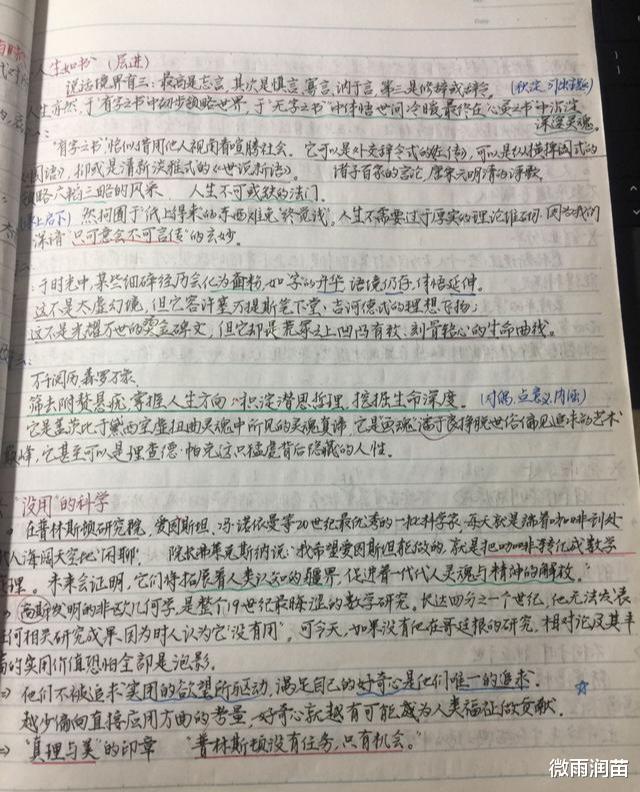 人生如书 (层进)
说话境界有三：最高是忘言，其次是慎言、寡言、讷于言，第三是修辞或辞令。(积淀、引出
人生亦然，于"有字之书"中初步领略世界，于"无字之书"中体悟世间冷暖，最终在"心灵之书"中沉淀
深邃灵魂。
"有字之书"恰似借用他人视阈看喧腾社会。它可以是外交辞令式的《左传》，可以是纵横捭阖式的
《国语》，抑或是清新淡雅式的《世说新语》。 诸子百家的言论，唐宋元明清的诗歌
领略六韬三略的风采， 人生不可或缺的法门。
(承上启下) 然拘囿于"纸上得来"的东西难免"终觉浅"。人生不需要过于厚实的理论作
深谙"只可意会不可言传"的玄妙。
于时光中，某些细碎经历会化为面粉，如字的升华，语境仍存，体悟延伸。
这不是太虚幻境，但它容许塞万提斯笔下堂·吉诃德式的理想飞扬；
这不是光耀万世的碑文，但它却是荒冢之上凹凸有致、刻骨铭心的生命曲线。
万千阅历森罗万象
筛去附赘悬疣，掌握人生方向，积淀潜思哲理，挖掘生命深度。 (对偶，点意义、内涵)
它是莎茨比于黛西空虚扭曲灵魂中所见的灵魂真谛，它是"画魂"潘于良挣脱世俗偏见追求的艺术
巅峰，它甚至可以是理查德·帕克这只猛虎背后隐藏的人性。
"没用"的科学
在普林斯顿研究院，爱因斯坦、冯·诺依曼等20世纪最优秀的一批科学家，每天就是端着咖啡到处
找人海阔天空地"闲聊"。 院长弗莱克斯纳说："我希望爱因斯坦能做的，就是把咖啡转化成数学
定理。未来会证明，它们将拓展着人类认知的疆界，促进着一代代人灵魂与精神的解放。"
高斯发明的非欧几何学，是整个19世纪最晦涩的数学研究。长达四分之一个世纪，他无法发表
任何相关研究成果，因为时人认为它"没有用"，可今天，如果没有他在哥廷根的研究，相对论及其丰
富的实用价值恐怕全部是泡影。
⇒ 他们不被追求实用的欲望所驱动，满足自己的好奇心是他们唯一的追求。
越少偏向直接应用方面的考量，好奇心就越有可能成为人类福祉做贡献。 ☆
⇒ "真理与美"的印章 "普林斯顿没有任务，只有机会。"
微雨润苗